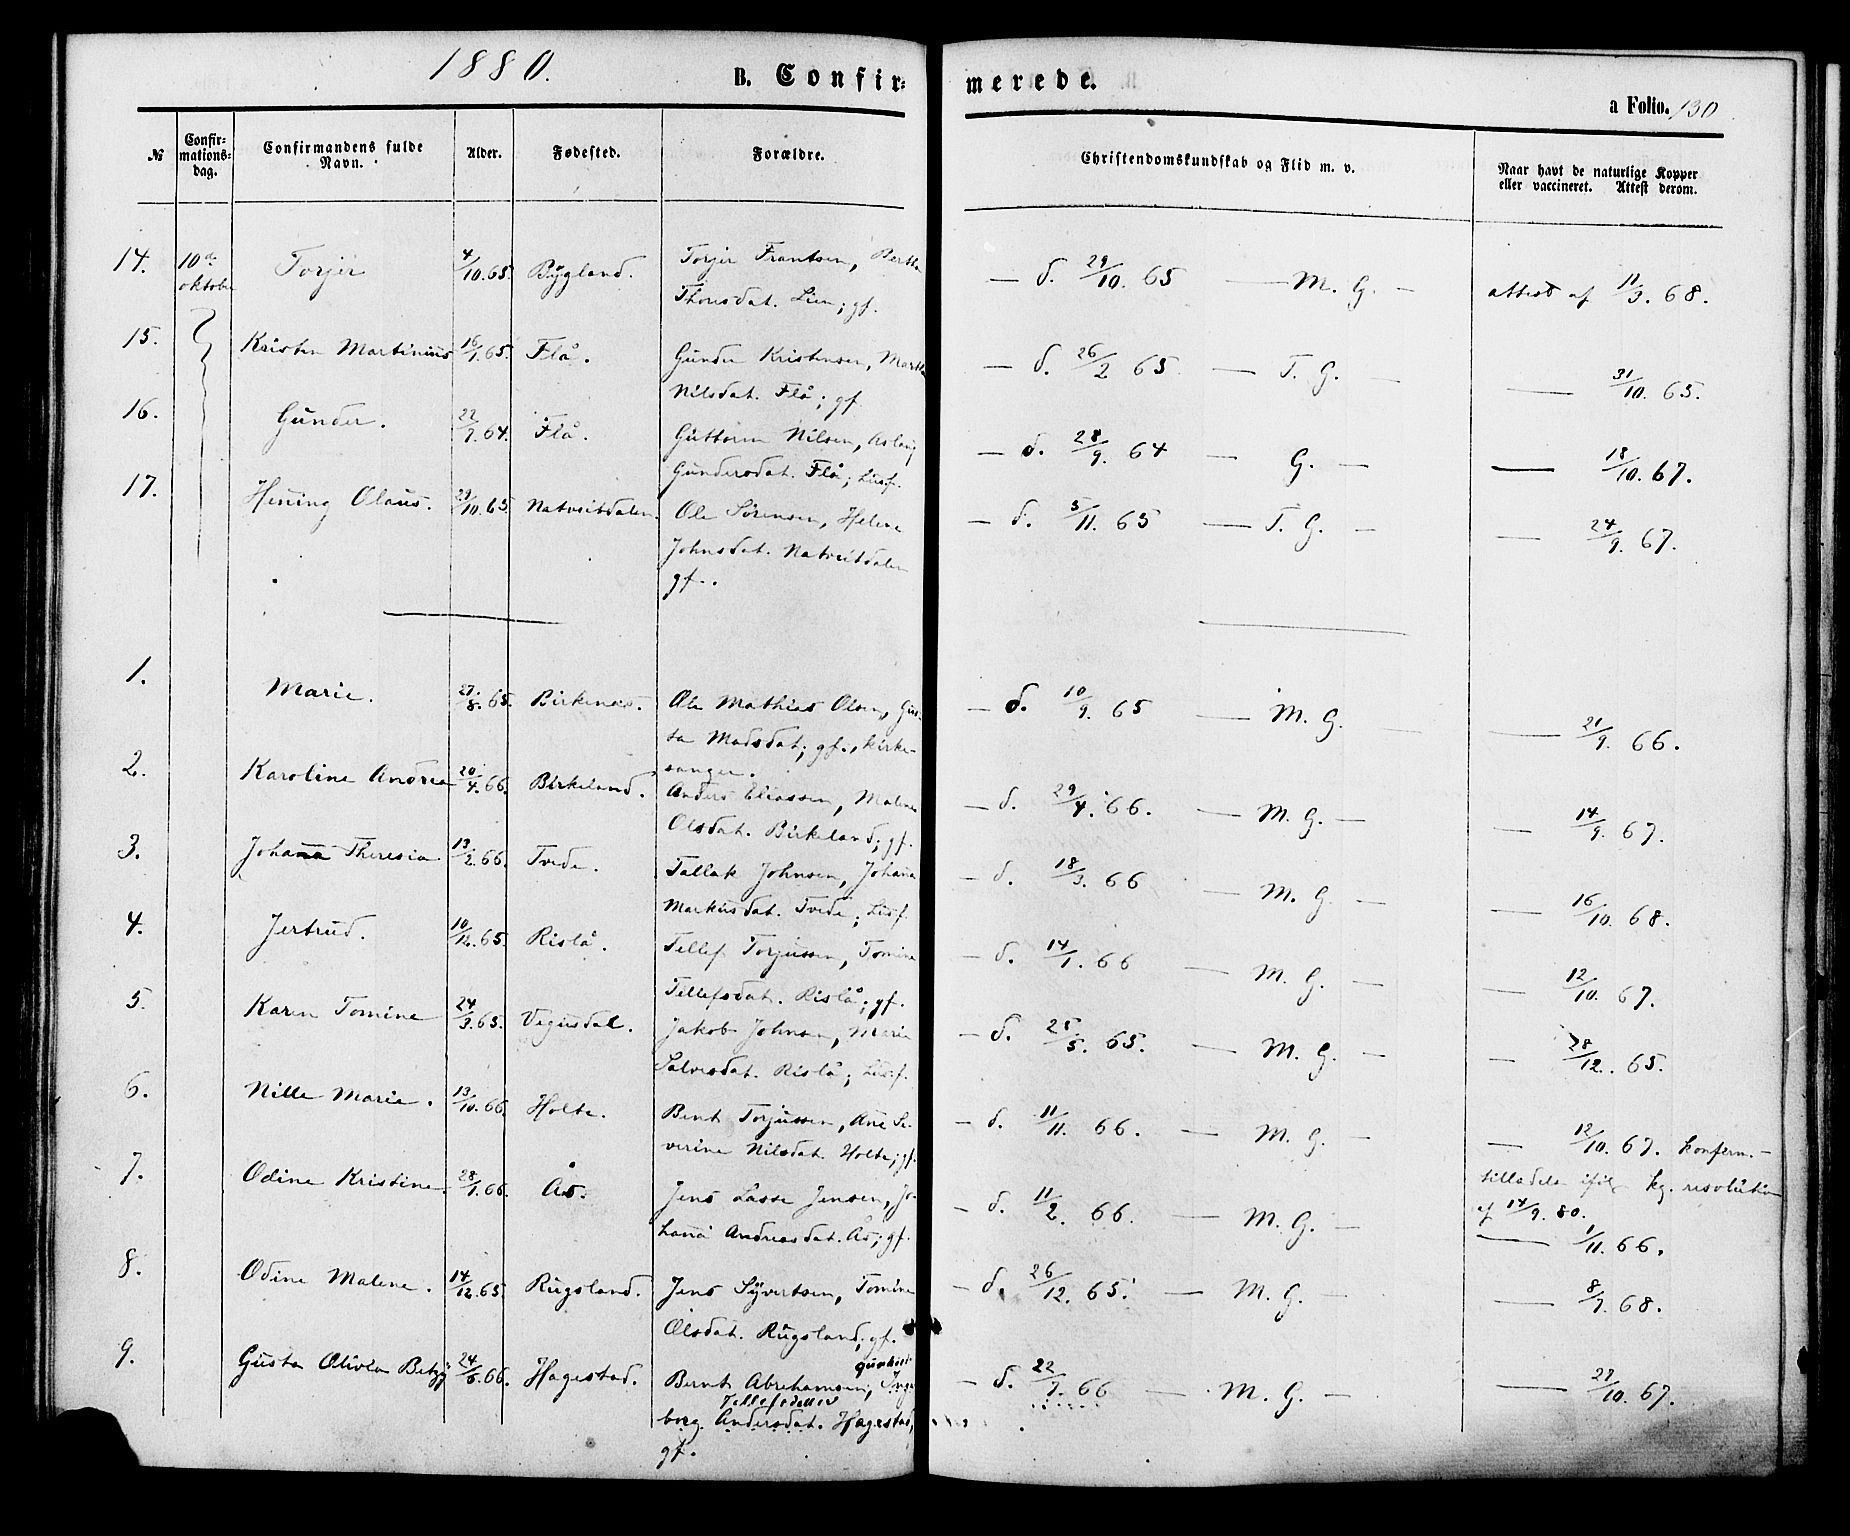 1880.
B. Confir=
merede.
a Folio. 130
№
Confir=
mations=
dag.
Confirmandens fulde
Navn.
Alder.
Fødested.
Forældre.
Christendomskundskab og Flid m. v.
Naar havt de naturlige Kopper
eller vaccineret. Attest derom.
14. 10de Torjer 4/10. 65. Bygland. Torjer Frantsen, Bertha — d. 29/10. 65 — M. G. — attest af 11/3. 68.
oktober Thorsdat. Lien; gf.
15. Kristen Martinius 16/1. 65. Flå. Gunder Kristensen, Martha — d. 26/2 65 — T. G. — — 31/10. 65.
Nilsdat. Flå; gf
16. Gunder. 22/7. 64. Flå. Guttorm Nilsen, Aslaug — d. 28/9. 64 — G. — — 18/10. 67.
Gundersdat. Flå; Husf.
17. Hening Olaus. 29/10. 65. Natveitdalen. Ole Sørensen, Helene — d. 5/11. 65 — T. G. — — 24/9. 67.
Johnsdat. Natveitdalen
gf.
1. Marie. 27/8. 65. Birkenæs. Ole Mathias Olsen, Gus-
— d. 10/9. 65 — M. G. — — 21/9. 66.
ta Madsdat; gf., kirke-
sanger.
2. Karoline Andrea 20/4. 66. Birkeland. Anders Eliassen, Malene — d. 29/4. 66. — M. G. — — 14/9. 67.
Olsdat. Birkeland; gf.
3. Johanna Theresia 13/2. 66. Tvede. Tallak Johnsen, Johanna — d. 18/3. 66 — M. G. — — 16/10. 68.
Markusdat. Tvede; Husf.
4. Jertrud. 10/12. 65. Rislå. Tellef Torjussen, Tomine — d. 14/1. 66 — M. G. — — 12/10. 67.
Tellefsdat. Rislå; gf.
5. Karen Tomine 24/3. 65. Vegusdal. Jakob Johnsen, Marie — d. 25/5. 65. — M. G. — — 28/12. 65.
Salvesdat. Rislå; Husf.
6. Nille Marie. 13/10. 66. Holte. Bent Torjussen, Ane Se- — d. 11/11. 66. — M. G. — — 12/10. 67. konferm.-
verine Nilsdat. Holte; gf. tilladelse ifølg kg. resolution
af 14/9. 80.
7. Odine Kristine. 28/1. 66. Ås. Jens Lasse Jensen, Jo- — d. 11/2. 66. — M. G. — — 1/11. 66.
hanna Andreasdat. Ås; gf.
8. Odine Malene. 14/12. 65 Rugsland. Jens Syvertsen, Tomine — d. 26/12. 65. — M. G. — — 8/7. 68.
Olsdat. Rugsland; gf.
9. Gusta Olivia Betzy 24/6. 66. Hagestad. Bernt Abrahamsen, Inge — d. 22/7. 66 — M. G. — — 27/10. 67.
Tellefsdatter
borg Andersdat. Hagestad,
gf.